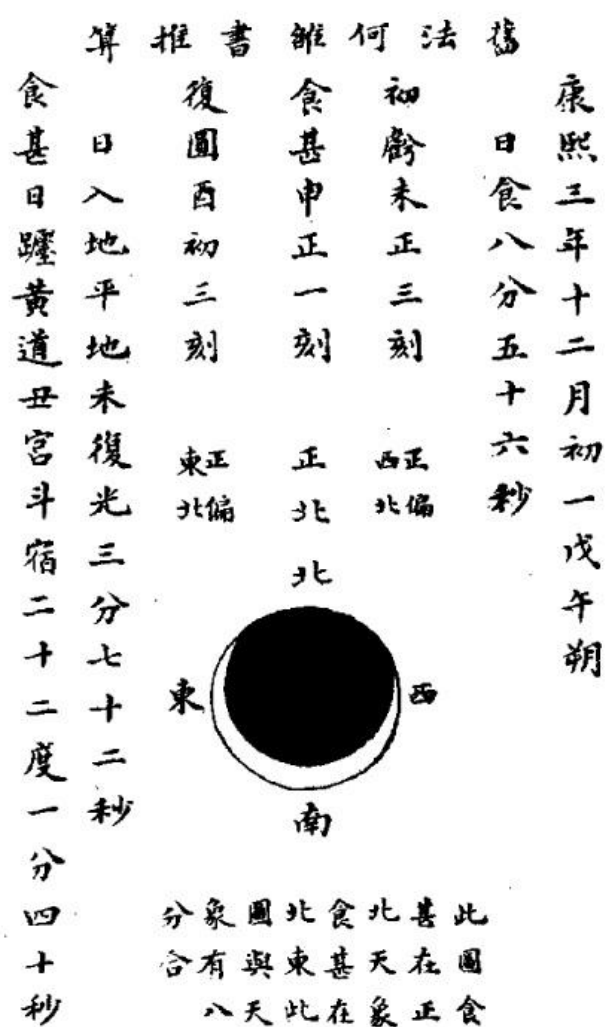 舊法何雒書推算
康熙三年十二月初一戊午朔
日食八分五十六秒
初虧未正三刻
正偏
西北
食甚申正一刻
正北
復圓酉初三刻
正偏
東北
日入地平地未復光三分七十二秒
食甚日躔黃道丑宮斗宿二十二度一分四十秒
北
西
東
南
此圖食
甚在正
北天象
食甚在
北東此
圖與天
象有八
分合